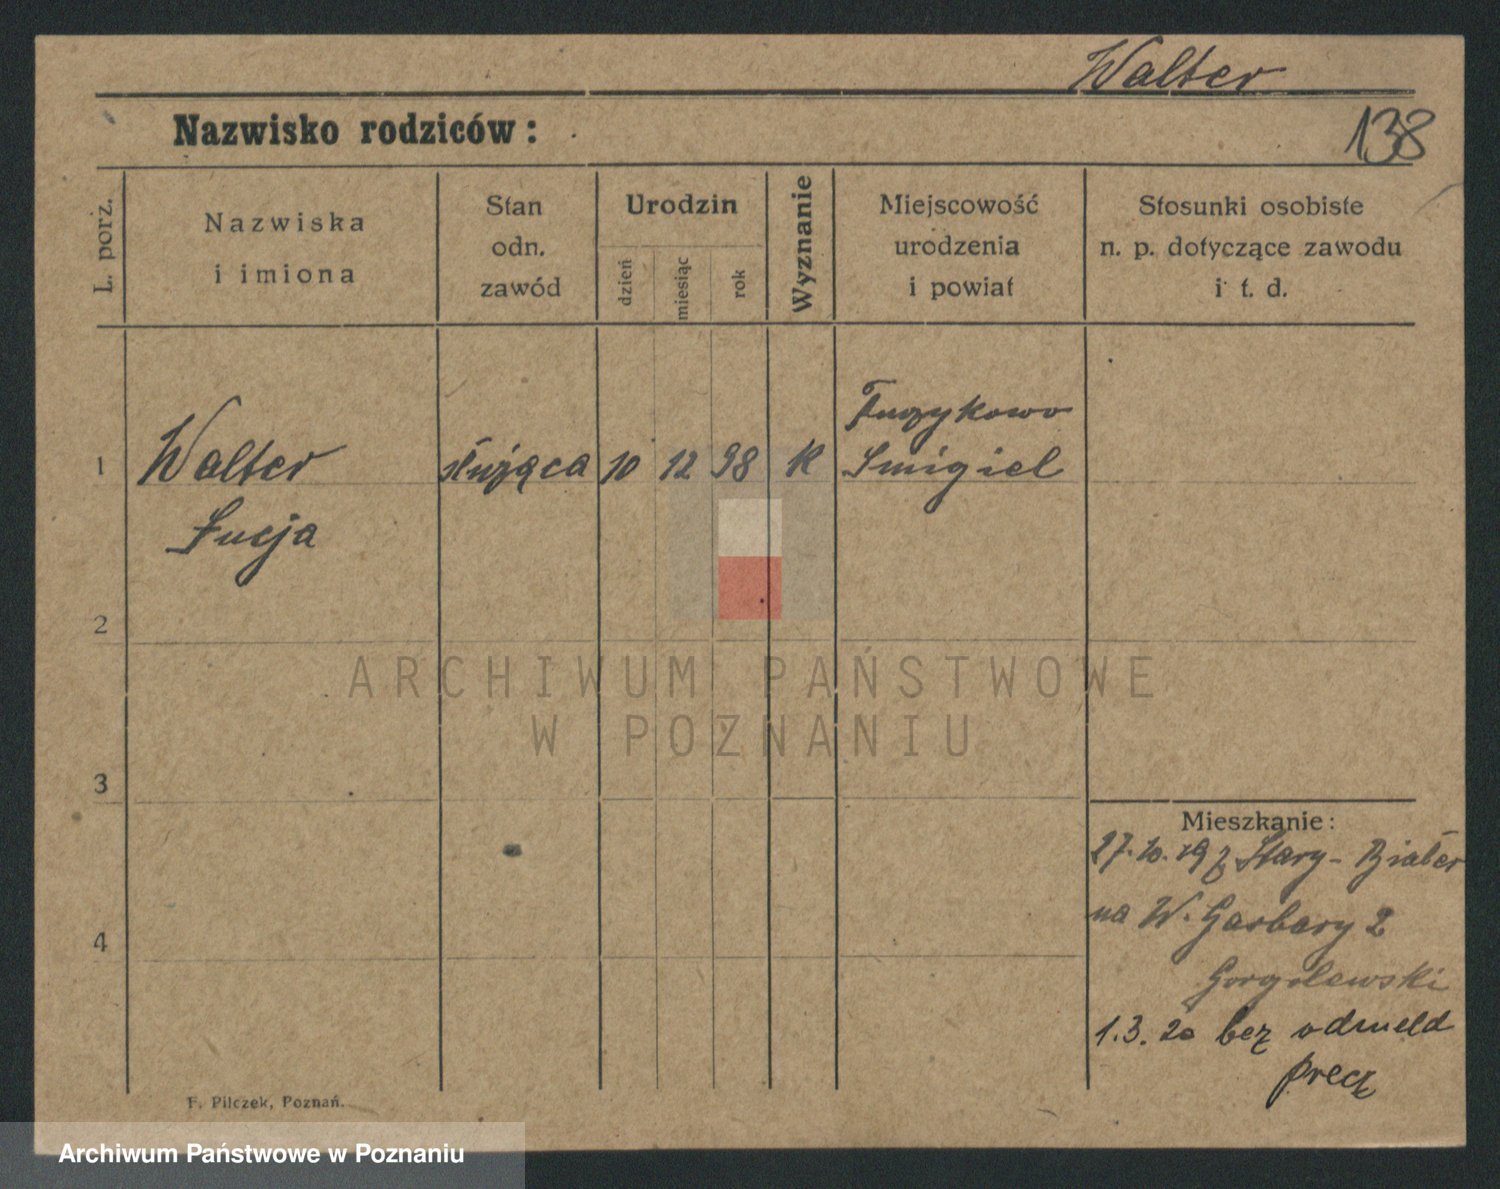 Walter
Nazwisko rodziców:
138
L. porz.
Nazwiska
i imiona
Stan
odn.
zawód
Urodzin
dzień
miesiąc
rok
Wyznanie
Miejscowość
urodzenia
i powiat
Stosunki osobiste
n. p. dotyczące zawodu
i t. d.
1
Walter
Łucja
służąca
10
12
98
K
Śmigiel
2
3
4
ARCHIWUM PAŃSTWOWE
W POZNANIU
Mieszkanie:
27.10.19 z Stary-
na W. Garbary 2
Gorgolewski
1.3.20 bez odmeld
precz
F. Pilczek, Poznań.
Archiwum Państwowe w Poznaniu